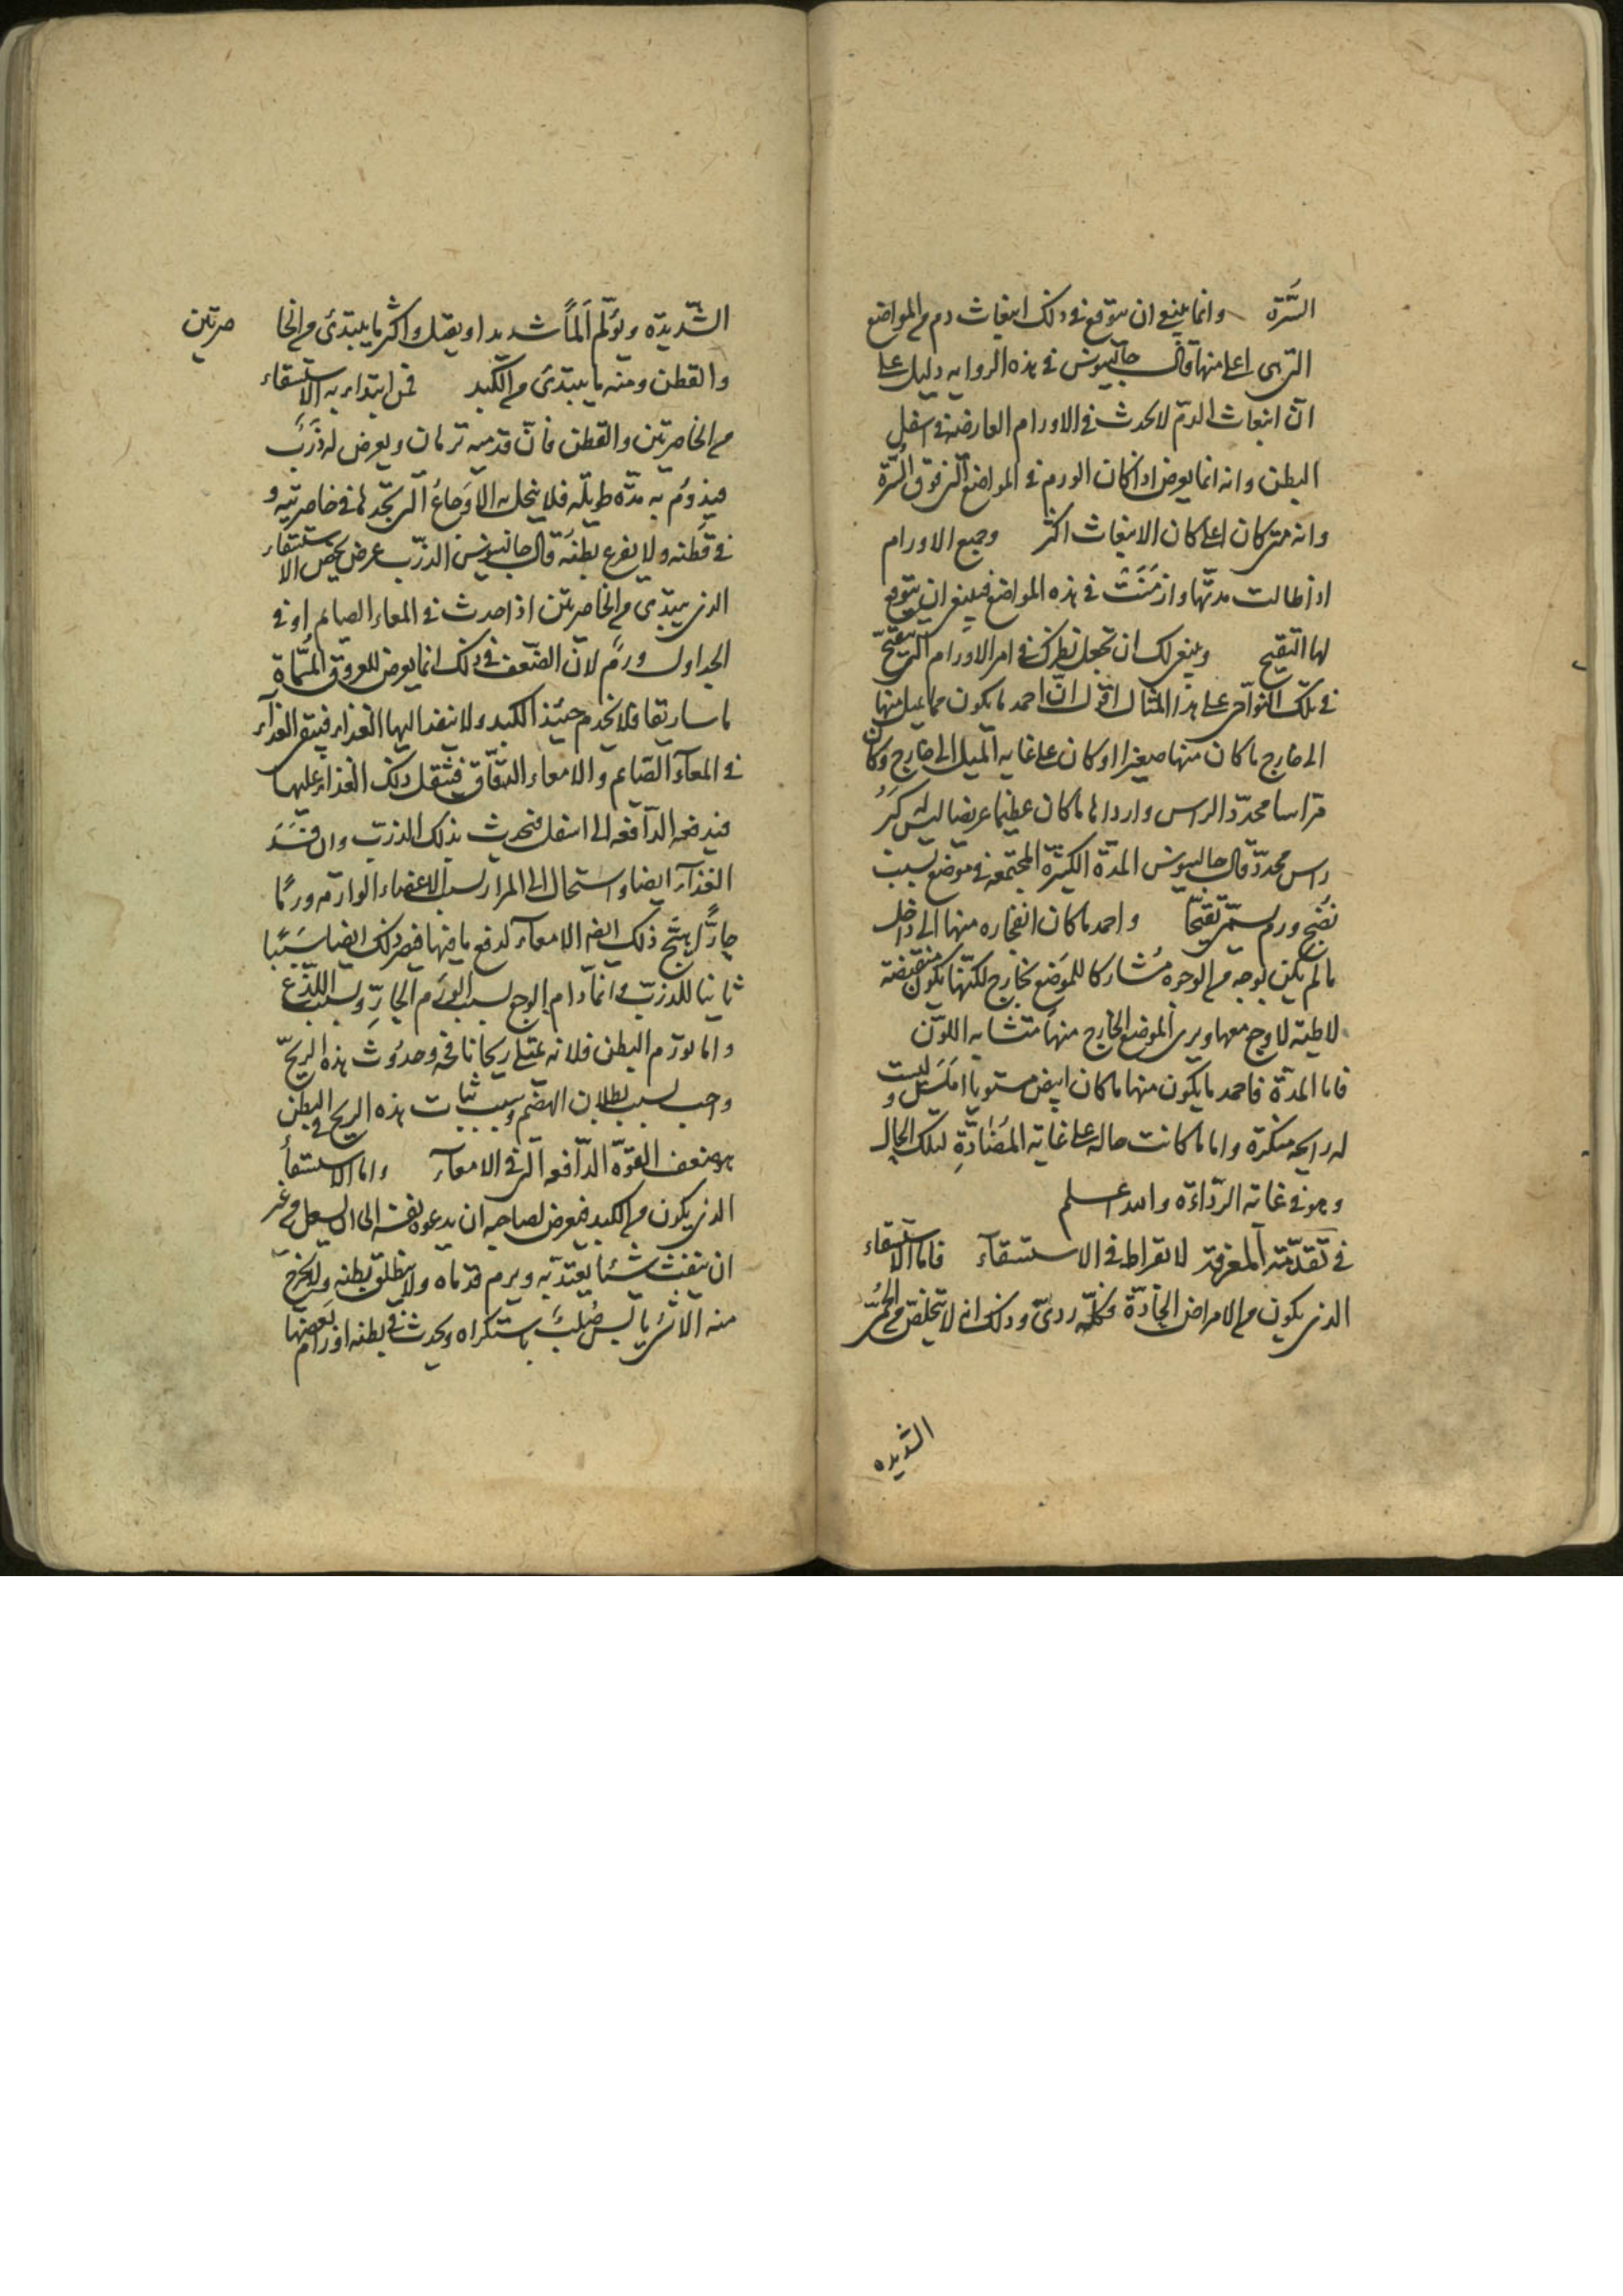 السّرة وانما ينبغى ان يتوقع فى ذلك انبعاث دم من المواضع
التى هى اعلى منها قال جالينوس فى هذه الروايه دليل على
ان انبعاث الدم لا يحدث فى الاورام العارضه فى اسفل
البطن وانه انما يعرض اذا كان الورم فى المواضع التى فوق السّرة
وانه متى كان اعلى كان الانبعاث اكثر وجميع الاورام
اذا طالت مدتها وازمَنَت فى هذه المواضع فينبغى ان يتوقع
لها التقيح وينبغى لك ان تجعل نظرك فى امر الاورام التى تتقيّح
فى تلك النواحى على هذا المثال اقول انّ احمد ما يكون مما يميل منها
الى خارج ما كان منها صغيرا وكان على غايه الميل الى خارج وكان
مراسا محدّد الراس واردا ها ما كان عظيما عريضا ليس له كبير
راس محدد قال جالينوس المدة الكثيرة المجتمعه فى موضع بسبب
نضج ورم يسمّى تقيحًا واحمد ما كان انفجاره منها الى داخل
ما لم يكن بوجه من الوجوه مشاركا للموضع الخارج لكنّها يكون منقبضة
لاطيه لا وجع معها ويرى الموضع الخارج منها متشابه اللون
فاما المدّة فاحمد ما يكون منها ما كان ابيض مستويا املس وليست
له رايحه منكرة واما ما كانت حاله على غاية المضادّة لتلك الحال
وهو فى غاية الرّداءة والله اعلم
فى تقدّمة المعرفة لابقراط فى الاستسقاء فاما الاستسقاء
الذى يكون من الامراض الحادّة فكلّه ردىّ وذلك انه لا يتخلّص من الحمّى
الشديده
الشّديدة ويولم المًا شديدا ويقتل واكثر ما يبتدى من الخا صرتين
والقطن ومنه ما يبتدى من الكبد فمن ابتداء به الاستسقاء
من الخاصرتين والقطن فانّ قدميه ترمان ويعرض له ذَرَب
فيدوم به مدّه طويله فلا ينحل به الاوجاع التى يجدها فى خاصرتيه و
فى قطنه ولا يفرغ بطنه قال جالينوس الذرب عرض يخصّ الاستسقاء
الذى يبتدى من الخاصرتين اذا حدث فى المعاء الصايم او فى
الجداول ورم لان الضعف فى ذلك انما يعرض للعروق المسمّاة
ماساريقا فلا تخدم حينئذ الكبد ولا ينفذ اليها الغذاء فيبقى الغذاء
فى المعاء الصّايم والامعاء الدّقاق فيثقل ذلك الغذاء عليها
فيدفعه الدّافعه الى اسفل فيحدث بذلك الذرب وان فسَدَ
الغذاء ايضا واستحال الى المرار بسبب الاعضاء الوارمه ورمًا
حارًّا يهيّج ذلك ايضا الامعاء لدفع ما فيها فيصير ذلك ايضا سببًا
ثانيا للذرب وانما دام الوجع بسبب الورم الحارّ وبسبب اللذّع
واما تورّم البطن فلانه يمتلى ريحا نافخه وحدوث هذه الريح
واجب بسبب بطلان الهضم وسبب ثبات هذه الريح فى البطن
هو ضعف القوّة الدّافعه التى فى الامعاء واما الاستسقاء
الذى يكون من الكبد فيعرض لصاحبه ان يدعوه نفسه الى ان يسعل من غير
ان ينفث شيئا يعتدّ به ويرم قدماه ولا ينطلق بطنه ولا يخرج
منه الا شى يابس صلب باستكراه ويحدث فى بطنه اورام بعضها